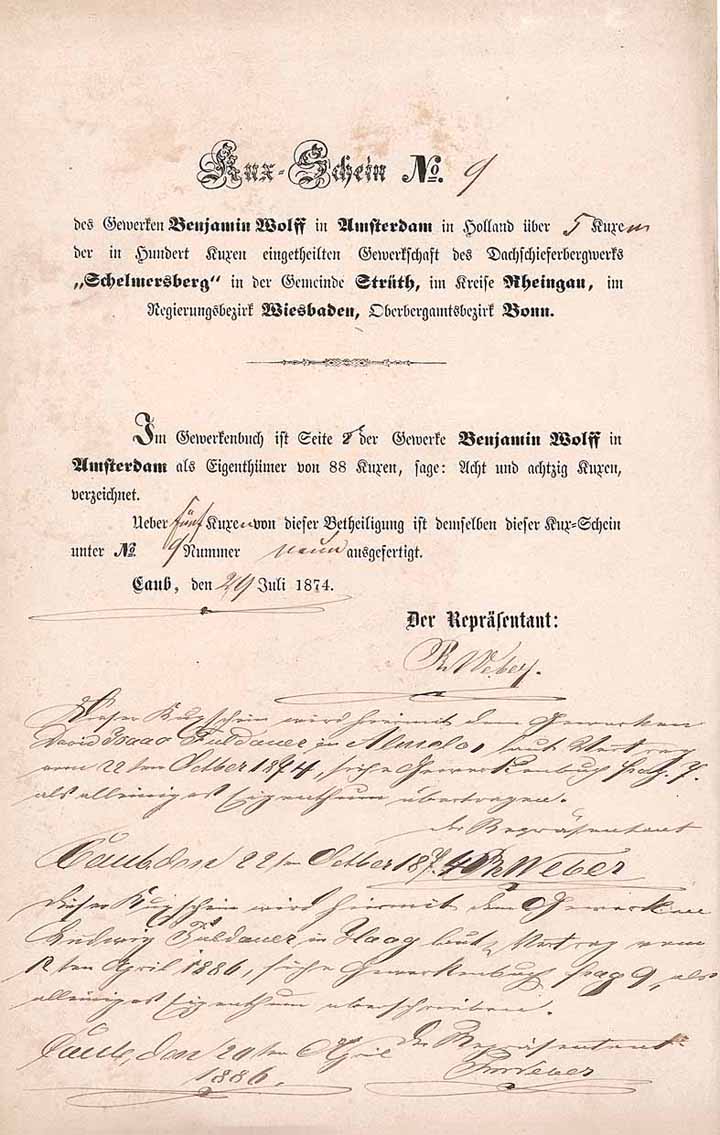 Kux-Schein No. 9
des Gewerken Benjamin Wolff in Amsterdam in Holland über 5 Kuxen
der in Hundert Kuxen eingetheilten Gewerkschaft des Dachschieferbergwerks
„Schelmersberg“ in der Gemeinde Strüth, im Kreise Rheingau, im
Regierungsbezirk Wiesbaden, Oberbergamtsbezirk Bonn.
Im Gewerkenbuch ist Seite der Gewerke Benjamin Wolff in
Amsterdam als Eigenthümer von 88 Kuxen, sage: Acht und achtzig Kuxen,
verzeichnet.
Ueber fünf Kuxen von dieser Betheiligung ist demselben dieser Kux-Schein
unter No 9 Nummer neun ausgefertigt.
Caub, den 29 Juli 1874.
Der Repräsentant:
Ph Weber.
Dieser Kuxschein wird hiermit dem Gewerken
David Isaac Fuldauer in Almelo, laut Vertrag
vom 22ten October 1874, siehe Gewerkenbuch pag. 7.
als alleiniges Eigenthum übertragen.
Der Repräsentant
Caub, den 22ten October 1874 Ph Weber
Dieser Kuxschein wird hiermit dem Gewerken
Ludwig Fuldauer in Haag laut Vertrag vom
12ten April 1886, siehe Gewerkenbuch pag 9, als
alleiniges Eigenthum überschrieben.
Caub, den 20ten April Der Repräsentant
1886. Ph Weber